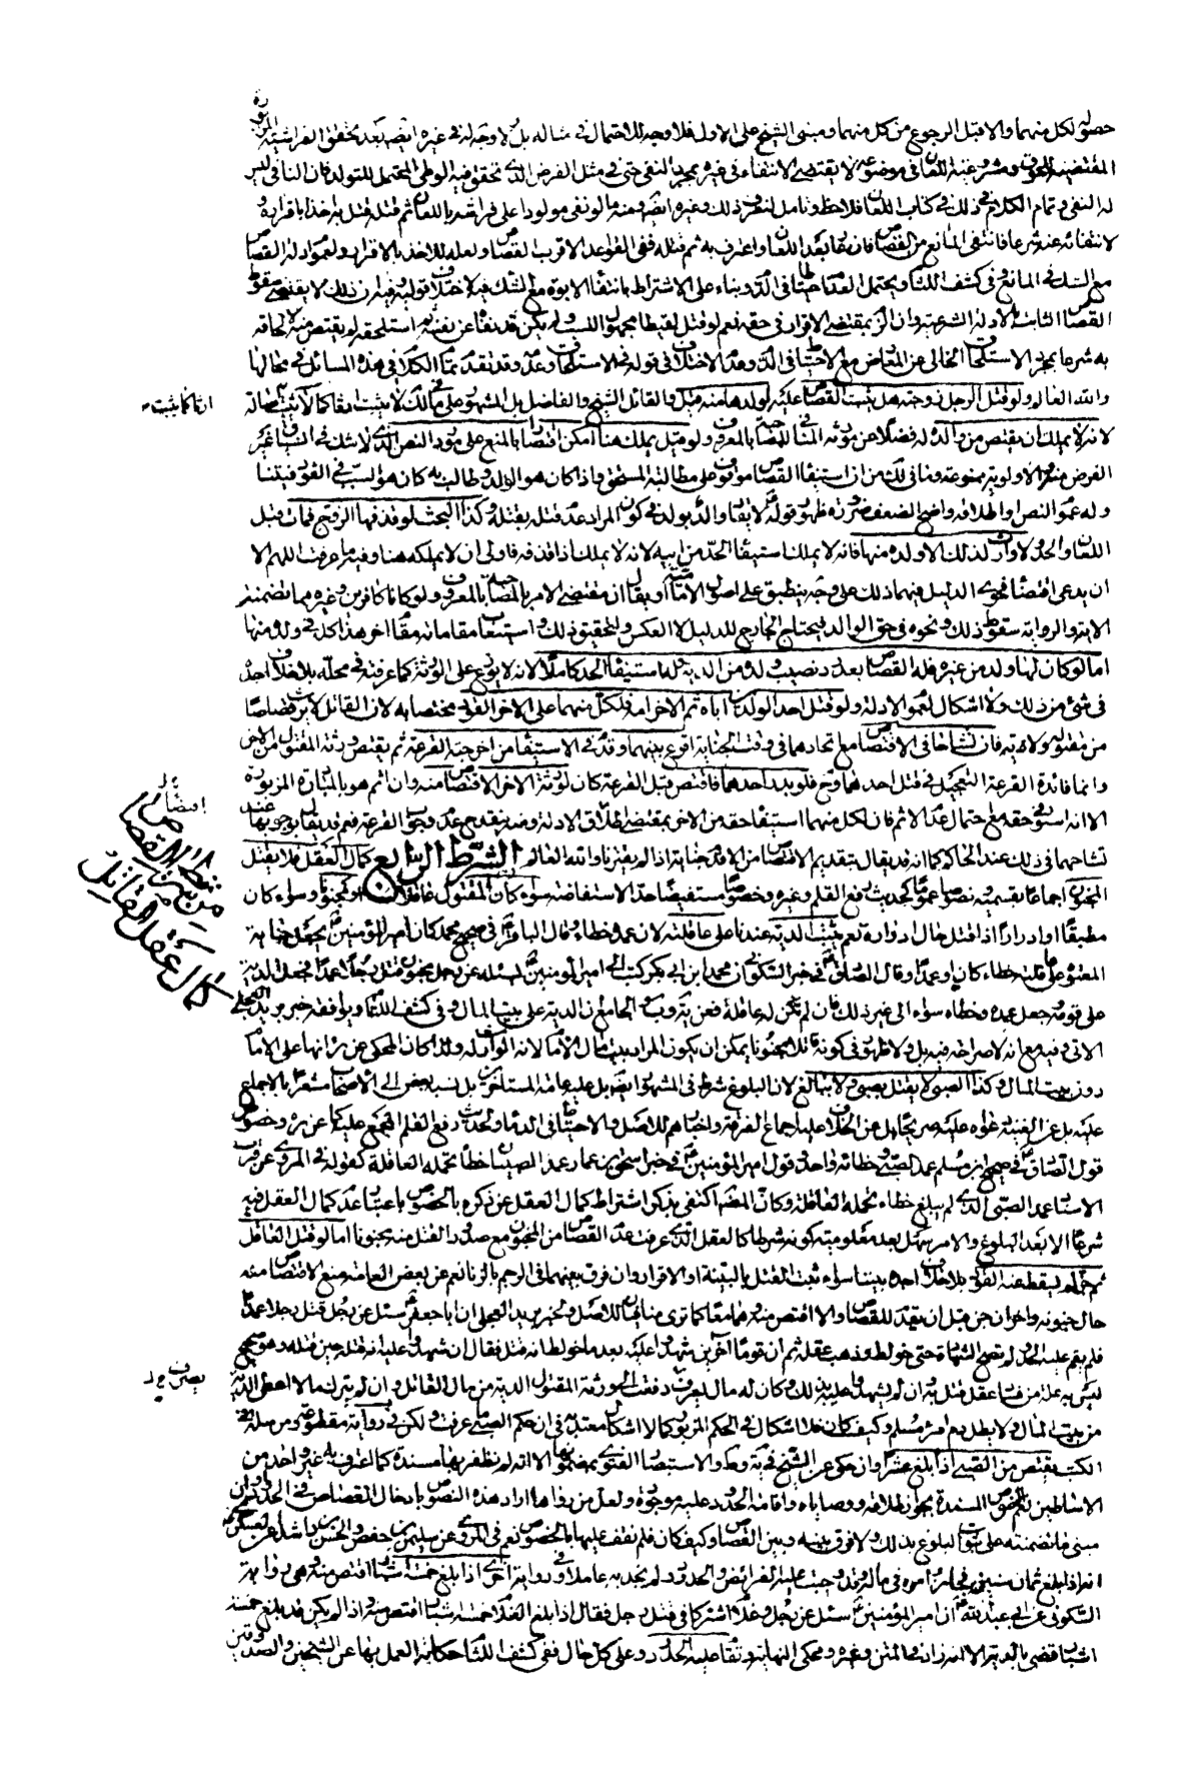 حصوله لكل منهما والا قبل الرجوع من كل منهما ومبنى الشيخ على الاول فلا وجه للاحتمال في مثاله بل لا وجه له في غيره ايضا بعد تحقق الفراشية المزبورة
المقتضية ومشروعية اللعان في موضوعه لا يقتضي الانتفاء في غيره بمجرد النفي حتى في مثل الفرض الذي تحقق فيه الوطي المحتمل للتولد فان النافي ليس
له النفي وتمام الكلام في ذلك في كتاب اللعان فلاحظ وتامل لتعرف ذلك وغيره ايضا ومنه ما لو نفى مولودا على فراشه باللعان ثم قتله قتل به اخذا باقراره و
لانتفائه عنه شرعا فانتفى المانع من القصاص فان بعد اللعان واعترف به ثم قتله ففي القواعد الاقرب القصاص ولعله للاخذ بالاقرار ولعموم ادلة القصاص
مع الشك في المانع وفي كشف اللثام ويحتمل العدم احتياطا في الدم وبناء على الاشتراط بانتفاء الابوة مع الشك فيه لاختلاف قوليه وفيه ان ذلك لا يقتضي سقوط
القصاص الثابت بالادلة الشرعية وان الزم بمقتضى الاقرار في حقه نعم لو قتل لقيطا مجهول النسب ولم يكن قد نفاه عن نفسه ثم استلحقه لم يقتص منه لالحاقه
به شرعا بمجرد الاستلحاق الخالي عن المعارض مع الاحتياط في الدم وعدم الاختلاف في قوله في الاستلحاق وعدمه وقد تقدم تمام الكلام في هذه المسائل في محالها
والله العالم ولو قتل الرجل زوجته هل يثبت القصاص عليه لولدها منه قيل والقائل الشيخ والفاضل بل المشهور على ما في المسالك لا يثبت ارثا كما لا يثبت اصالة
ارثا كما يثبت
لانه لا يملك ان يقتص من والده له فضلا عن مورثه المنافي للمصاحبة بالمعروف ولو قيل يملك هنا امكن اقتصارا بالمنع على مورد النص الذي لا شك في انسياقه غير
الفرض منه والاولوية ممنوعة وما في المسالك من ان استيفاء القصاص موقوف على مطالبة المستحق واذا كان هو الولد وطالب به كان هو السبب في القود فيتناوله
وله عموم النص او اطلاقه واضح الضعف ضرورة ظهور قوله لا يقاد والد بولده في كون المراد عدم قتله بقتله وكذا البحث لو قذفها الزوج فماتت قبل
اللعان والحد ولا وارث لذلك الا ولده منها فانه لا يملك استيفاء الحد من ابيه لانه لا يملك اذا قذفه فاولى ان لا يملكه هنا وفيه ما عرفت اللهم الا
ان يدعى اقتضاء فحوى الدليل فيهما ذلك على وجه ينطبق على اصول الامامية او يقال ان مقتضى الامر بالمصاحبة بالمعروف ولو كانا كافرين وغيره مما تضمنته
الاية والرواية سقوط ذلك ونحوه في حق الوالد فيحتاج الخارج للدليل لا العكس والتحقيق ذلك واستيعاب مقاماته مقام اخر هذا كله في ولده منها
اما لو كان لها ولد من غيره فله القصاص بعد رد نصيب ولده من الدية وله استيفاء الحد كاملا لانه لا يوزع على الورثة كما عرفته في محله بلا خلاف اجده
في شيء من ذلك ولا اشكال لعموم الادلة ولو قتل احد الولدين اباه ثم الاخر امه فلكل منهما على الاخر القود مختصا به لان القاتل لا يرث قصاصا
من مقتوله ولا دية فان تشاحا في الاقتصاص مع اتحادهما في وقت الجناية اقرع بينهما وقدم في الاستيفاء من اخرجته القرعة ثم يقتص ورثة المقتول من الاخر
وانما فائدة القرعة التعجيل في قتل احدهما وح فلو بدر احدهما فاقتص قبل القرعة كان لورثة الاخر الاقتصاص منه وان اثم هو بالمبادرة المزبورة
الا انه استوفى حقه مع احتمال عدم الاثم فان لكل منهما استيفاء حقه من الاخر بمقتضى اطلاق الادلة وفيه قدح عدم وجوب القرعة نعم قد يقال بوجوبها عند
تشاحهما في ذلك عند الحاكم كما انه قد يقال بتقديم الاقتصاص من الاقدم جناية اذا لم يقترنا والله العالم الشرط الرابع كمال العقل فلا يقتل
من شرائط القصاص
كمال عقل القاتل
المجنون اجماعا بقسميه ونصوصا عموما كحديث رفع القلم وغيره وخصوصا مستفيضا حد الاستفاضة سواء كان المقتول عاقلا او مجنونا وسواء كان
مطبقا او ادوارا اذا قتل حال ادواره نعم يثبت الدية عندنا على عاقلته لان عمده خطاء وقال الباقر في صحيح محمد كان امير المؤمنين يجعل جناية
المعتوه على عاقلته خطاء كان او عمدا وقال الصادق في خبر السكوني ان محمد بن ابي بكر كتب الى امير المؤمنين يسئله عن رجل مجنون قتل رجلا عمدا فجعل الدية
على قومه وجعل عمده وخطاه سواء الى غير ذلك فان لم تكن له عاقلة فعن ية وب والجامع ان الدية على بيت المال وفي كشف اللثام ويوافقه خبر بريد العجلي
الاتي وفيه مع انه لا صراحة فيه بل ولا ظهور في كونه قاتلا مجنونا يمكن ان يكون المراد ببيت المال الامام لانه الوارث له ولذا كان المحكي عن ئر انها على الامام
دون بيت المال وكذا الصبي لا يقتل بصبي ولا ببالغ لان البلوغ شرط في المشهور ايضا بل عليه عامة المتاخرين بل نسبه بعض الى الاصحاب مشعرا بالاجماع
عليه بل عن الغنية دعواه عليه صريحا بل عن الخلاف عليه اجماع الفرقة واخبارهم للاصل والاحتياط في الدماء ولحديث رفع القلم المجمع عليه كما عن ئر وخصوص
قول الصادق في صحيح ابن مسلم عمد الصبي وخطائه واحد وقول امير المؤمنين في خبر اسحق بن عمار عمد الصبيان خطأ تحمله العاقلة كقوله في المروي عن قرب
الاسناد عمد الصبي الذي لم يبلغ خطاء تحمله العاقلة وكان المصنف اكتفى بذكر اشتراط كمال العقل عن ذكره بالخصوص باعتبار عدم كمال العقل فيه
شرعا الا بعد البلوغ والامر سهل بعد معلومية كونه شرطا كالعقل الذي عرفت عدم القصاص من المجنون مع صدور القتل منه مجنونا اما لو قتل العاقل
ثم جن لم يسقط عنه القود بلا خلاف اجده بيننا سواء ثبت القتل بالبينة او الاقرار وان فرق بينهما في الرجم بالزنا نعم عن بعض العامة منع الاقتصاص منه
حال جنونه واخر ان جن قبل ان يقدم للقصاص والا اقتص منه وهما معا كما ترى منافيان للاصل ولخبر بريد العجلي ان ابا جعفر سئل عن رجل قتل رجلا عمدا
فلم يقم عليه الحد ولم تصح الشهادة حتى خولط وذهب عقله ثم ان قوما اخرين شهدوا عليه بعد ما خولط انه قتله فقال ان شهدوا عليه انه قتله حين قتله وهو صحيح
ليس به علة من فساد عقل قتل به وان لم يشهدوا عليه بذلك وكان له مال يعرف دفعت الى ورثة المقتول الدية من مال القاتل وان لم يترك مالا اعطى الدية
يصرف خ ل
من بيت المال ولا يطل دم امرء مسلم وكيف كان فلا اشكال في الحكم المزبور كما لا اشكال معتد به في ان حكم الصبي ما عرفت ولكن في رواية مقطوعة ومرسلة في
الكتب يقتص من الصبي اذا بلغ عشرا وان حكي عن الشيخ في ية وط والاستبصار الفتوى بمضمونها الا انه لم نظفر بها مسندة كما اعترف به غير واحد من
الاساطين نعم بالخصوص المسندة بجواز طلاقه ووصاياه واقامة الحدود عليه موجودة ولعل من رواها اراد هذه النصوص بادخال القصاص في الحدود وان
مبنى ما تضمنته على ثبوت البلوغ بذلك ولا فرق بينه وبين القصاص وكيف كان فلم نقف عليها بالخصوص نعم في المروي عن سليمان بن حفص والحسن بن راشد عن العسكري
انه اذا بلغ ثمان سنين فجائز امره في ماله وقد وجبت عليه الفرائض والحدود ولم نجد به عاملا وفي رواية اخرى اذا بلغ خمسة اشبار اقتص منه وهي رواية
السكوني عن ابي عبد الله ان امير المؤمنين سئل عن رجل وغلام اشتركا في قتل رجل فقال اذا بلغ الغلام خمسة اشبار اقتص منه واذا لم يكن قد بلغ خمسة
اشبار قضي بالدية الا انه زاد في المتن وغيره ومحكي النهاية وتقام عليه الحدود وعلى كل حال ففي كشف اللثام حكاية العمل بها عن الشيخين والصدوقين